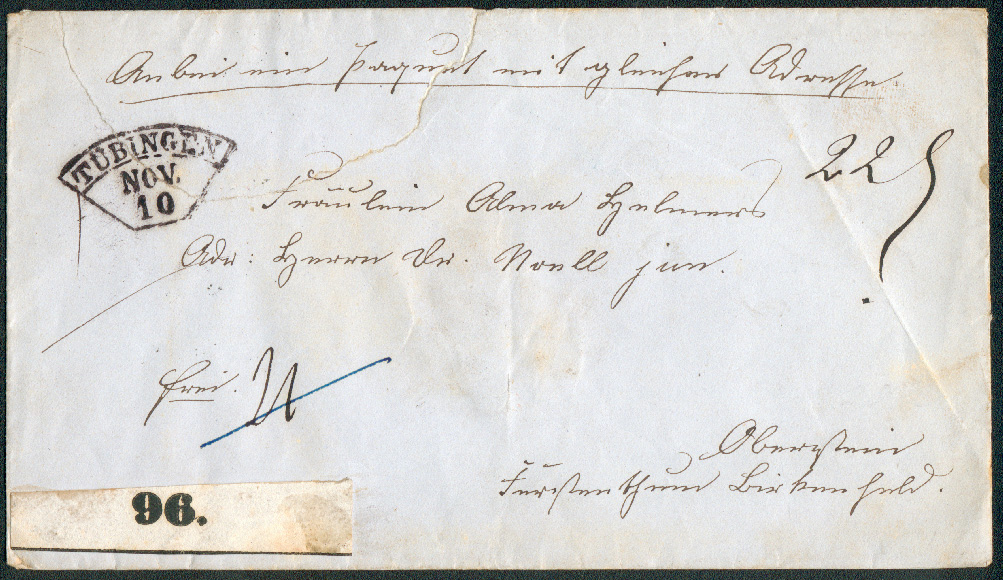 Anbei ein Paquet mit gleicher Adresse.
TÜBINGEN
NOV.
10
22
Fräulein Alma Helmers
Adr: Herrn Dr. Noell jun.
frei.
Oberstein
Fürstenthum Birkenfeld.
96.